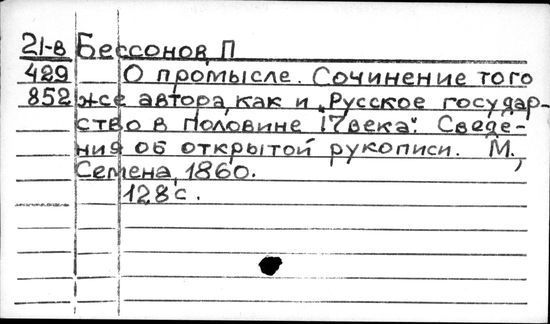 21-в Бессонов, П
429 О промысле. Сочинение того
852 же автора, как и „Русское государ-
ство в половине 17 века". Сведе-
ния об открытой рукописи. М.,
Семена, 1860.
128 с.